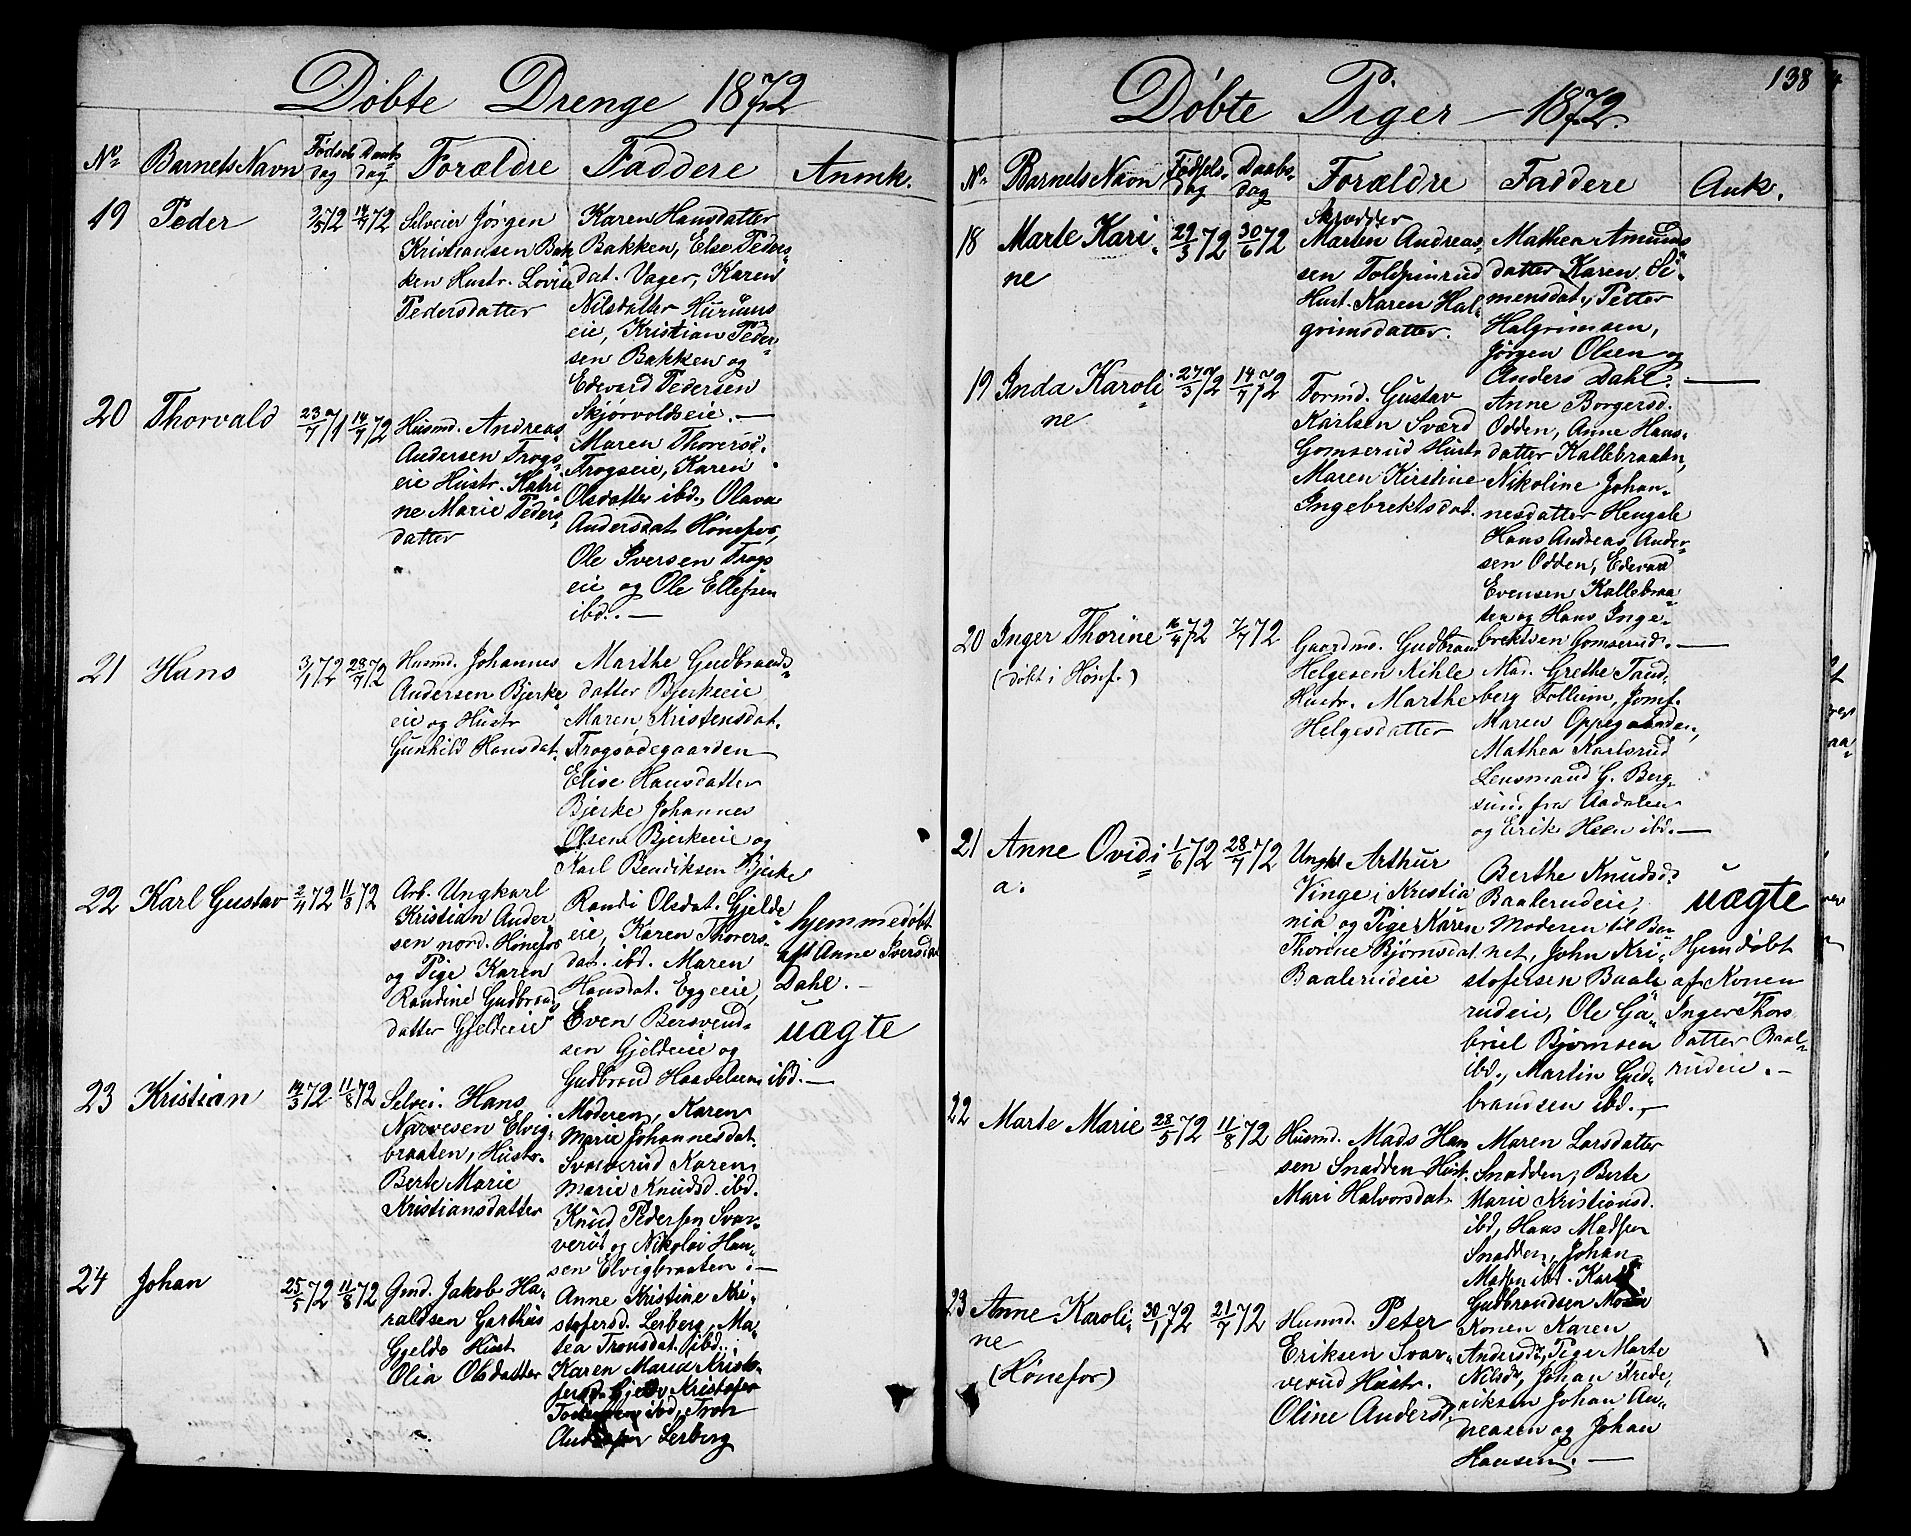 Døbte Drenge 1872
No. Barnets Navn Fødsels dag Daabs dag Forældre Faddere Anmk.
19 Peder 2/5 72 14/7 72
Selveier Jørgen
Kristiansen Bak
ken Hustr. Lovise
Pedersdatter
Karen Hansdatter
Bakken, Else Peders-
dat. Vager, Karen
Nilsdatter Hurums
eie, Kristian Peder-
sen Bakken og
Edevard Pedersen
Skjørvoldseie. —
20 Thorvald 23/7 71 14/7 72
Husmd. Andreas
Andersen Frogs-
eie Hustr. Katri
ne Marie Peders
datter
Maren Thorersd.
Frogseie, Karen
Olsdatter ibd., Olava
Andersdat. Hønefos,
Ole Iversen Frogs
eie og Ole Ellefsen
ibd. —
21 Hans 3/1 72 28/7 72
Husmd. Johannes
Andersen Bjerke
eie og Hustr
Gunhild Hansdat.
Marthe Gudbrands-
datter Bjerkeeie
Maren Kristensdat.
Frogsødegaarden
Elise Hansdatter
Bjerke Johannes
Olsen Bjerkeeie og
Karl Bendiksen Bjerke
22 Karl Gustav 2/4 72 11/8 72
Arb. Ungkarl
Kristian Ander
sen nord. Hønefos
og Pige Karen
Randine Gudbrands
datter Gjeldeeie
Randi Olsdat. Gjelde
eie, Karen Thorers-
dat. ibd. Maren
Hansdat. Eggeeie,
Even Bersvend-
sen Gjeldeeie og
Gudbrand Haavelsen ibd. —
hjemmedøbt
af Anne Iversdat
Dahl. —
uægte
23 Kristian 14/3 72 11/8 72
Selvei. Hans
Narvesen Elvig-
braaten, Hustr.
Berte Marie
Kristiansdatter
Moderen, Karen
Marie Johannesdat.
Svarverud Karen
Marie Knudsd. ibd.
Knud Pedersen Svar-
verud og Nikolai Han-
sen Elvigbraaten. —
24 Johan 25/5 72 11/8 72
Gmd. Jakob Ha-
raldsen Garthus
Gjelde Hust
Olia Olsdatter
Anne Kristine Kri-
stofersd. Lerberg, Ma-
tea Tronsdat. ibd.
Karen Maria Kristo-
fersd. Gjelde, Kristofer
ibd., Tron
Lerberg
Døbte Piger 1872.
138
No. Barnets Navn Fødsels- dag Daabs- dag Forældre Faddere Ank.
18 Marte Kari- 29/3 72 30/6 72
ne
Skrædder
Martin Andreas-
sen Toldpinrud
Hust. Karen Hal-
grimsdatter.
Mathea Amunds
datter Karen Si-
mensdat, Petter
Halgrimsen,
Jørgen Olsen og
Anders Dahl. —
19 Inda Karoli- 27/3 72 14/7 72
ne
Formd. Gustav
Karlsen Sværd
Gomserud Hustr
Maren Kirstine
Ingebrektsdat.
Anne Borgersd.
Odden, Anne Hans-
datter Kallebraatn,
Nikoline Johan-
nesdatter Hengsle
Hans Andreas Ander-
sen Odden, Edevard
Evensen Kallebraa-
ten og Hans Inge-
brektsen Gomserud. —
20 Inger Thorine 16/4 72 7/7 72
(døbt i Hønef.)
Gaardmd. Gudbran
Helgesen Kihle
Hustr. Marthe
Helgesdatter
Mad. Grethe Tand-
berg Follum, Jomf.
Maren Oppegaarden,
Mathea Karlsrud
Lensmand G. Berg-
sund fra Aadalen
og Erik Heen ibd. —
21 Anne Ovidi- 1/6 72 28/7 72
a.
Ungkl Arthur
Vinge i Kristia
nia og Pige Karen
Thorine Bjørnsdat
Baalerudeie
Berthe Knudsd.
Baalerudeie,
Moderen til Bar
net, John Kri-
stofersen Baale
rudeie, Ole Ga-
briel Bjørnsen
ibd., Martin Gud-
brandsen ibd. —
uægte
Hjemdøbt
af Konen
Inger Thors-
datter Baal-
rudeie. —
22 Marte Marie 28/5 72 11/8 72
Husmd. Mads Han
sen Snadden Hust.
Mari Halvorsdat.
Maren Larsdatter
Snadden, Berte
Marie Kristiansd.
ibd, Hans Madsen
Snadden, Johan
Madsen ibd.
Gudbrandsen Moen
23 Anne Karoli- 30/1 72 21/7 72
ne
(Hønefos)
Husmd. Peter
Eriksen Svar-
verud Hustr.
Oline Andersd.
Konen Karen
Andersdr, Pige Marte
Nilsdr, Johan Frede-
riksen Johan An-
dreasen og Johan
Hansen. —